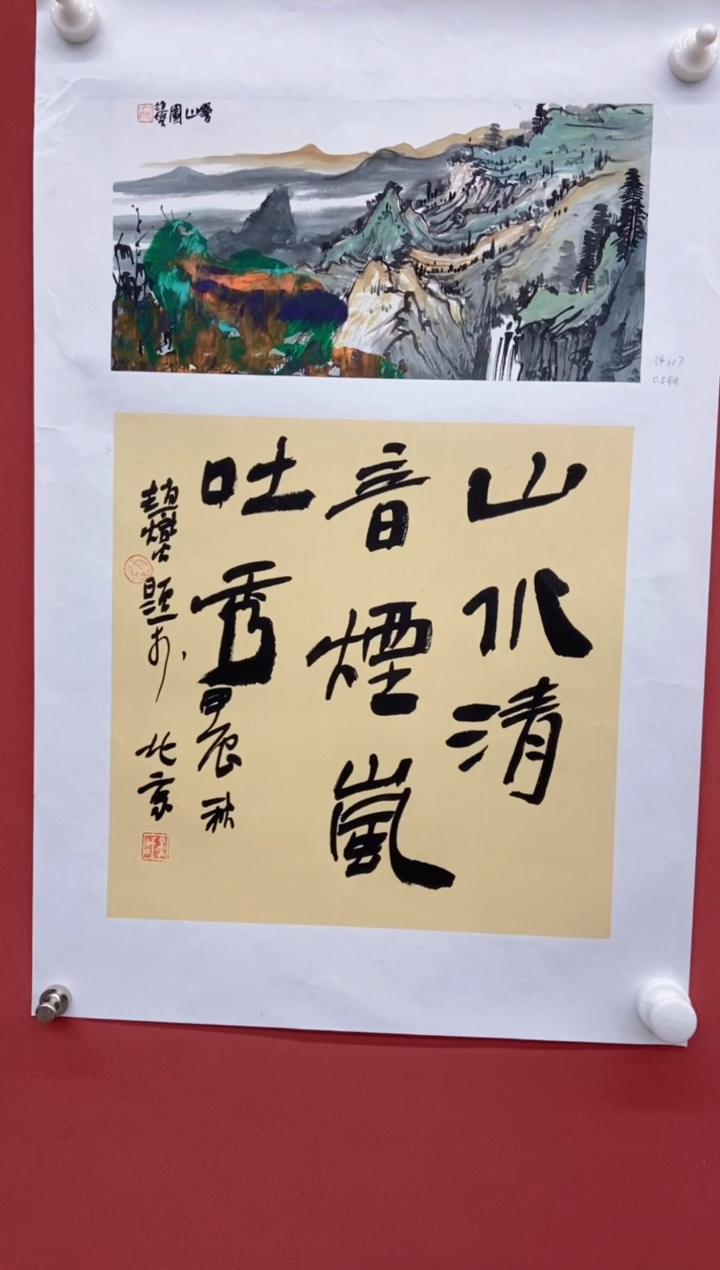 山圖
34×17
山水清
音煙嵐
吐秀甲辰秋
趙題於北京